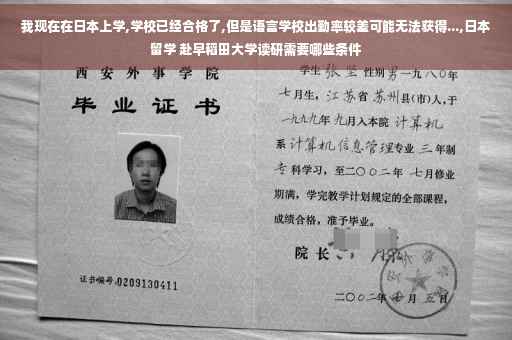 我现在在日本上学,学校已经合格了,但是语言学校出勤率较差可能无法获得...,日本
留学 赴早稻田大学读研需要哪些条件
西安外事学院
毕业证书
证书编号:0209130411
学生 张坚 性别 男 一九八0年
七月生，江苏省 苏州县(市)人,于
一九九九年 九月入本院 计算机
系 计算机信息管理专业 三 年制
专科学习，至二〇〇二年 七月修业
期满，学完教学计划规定的全部课程，
成绩合格，准予毕业。
院长
二〇〇二年 七月 五日